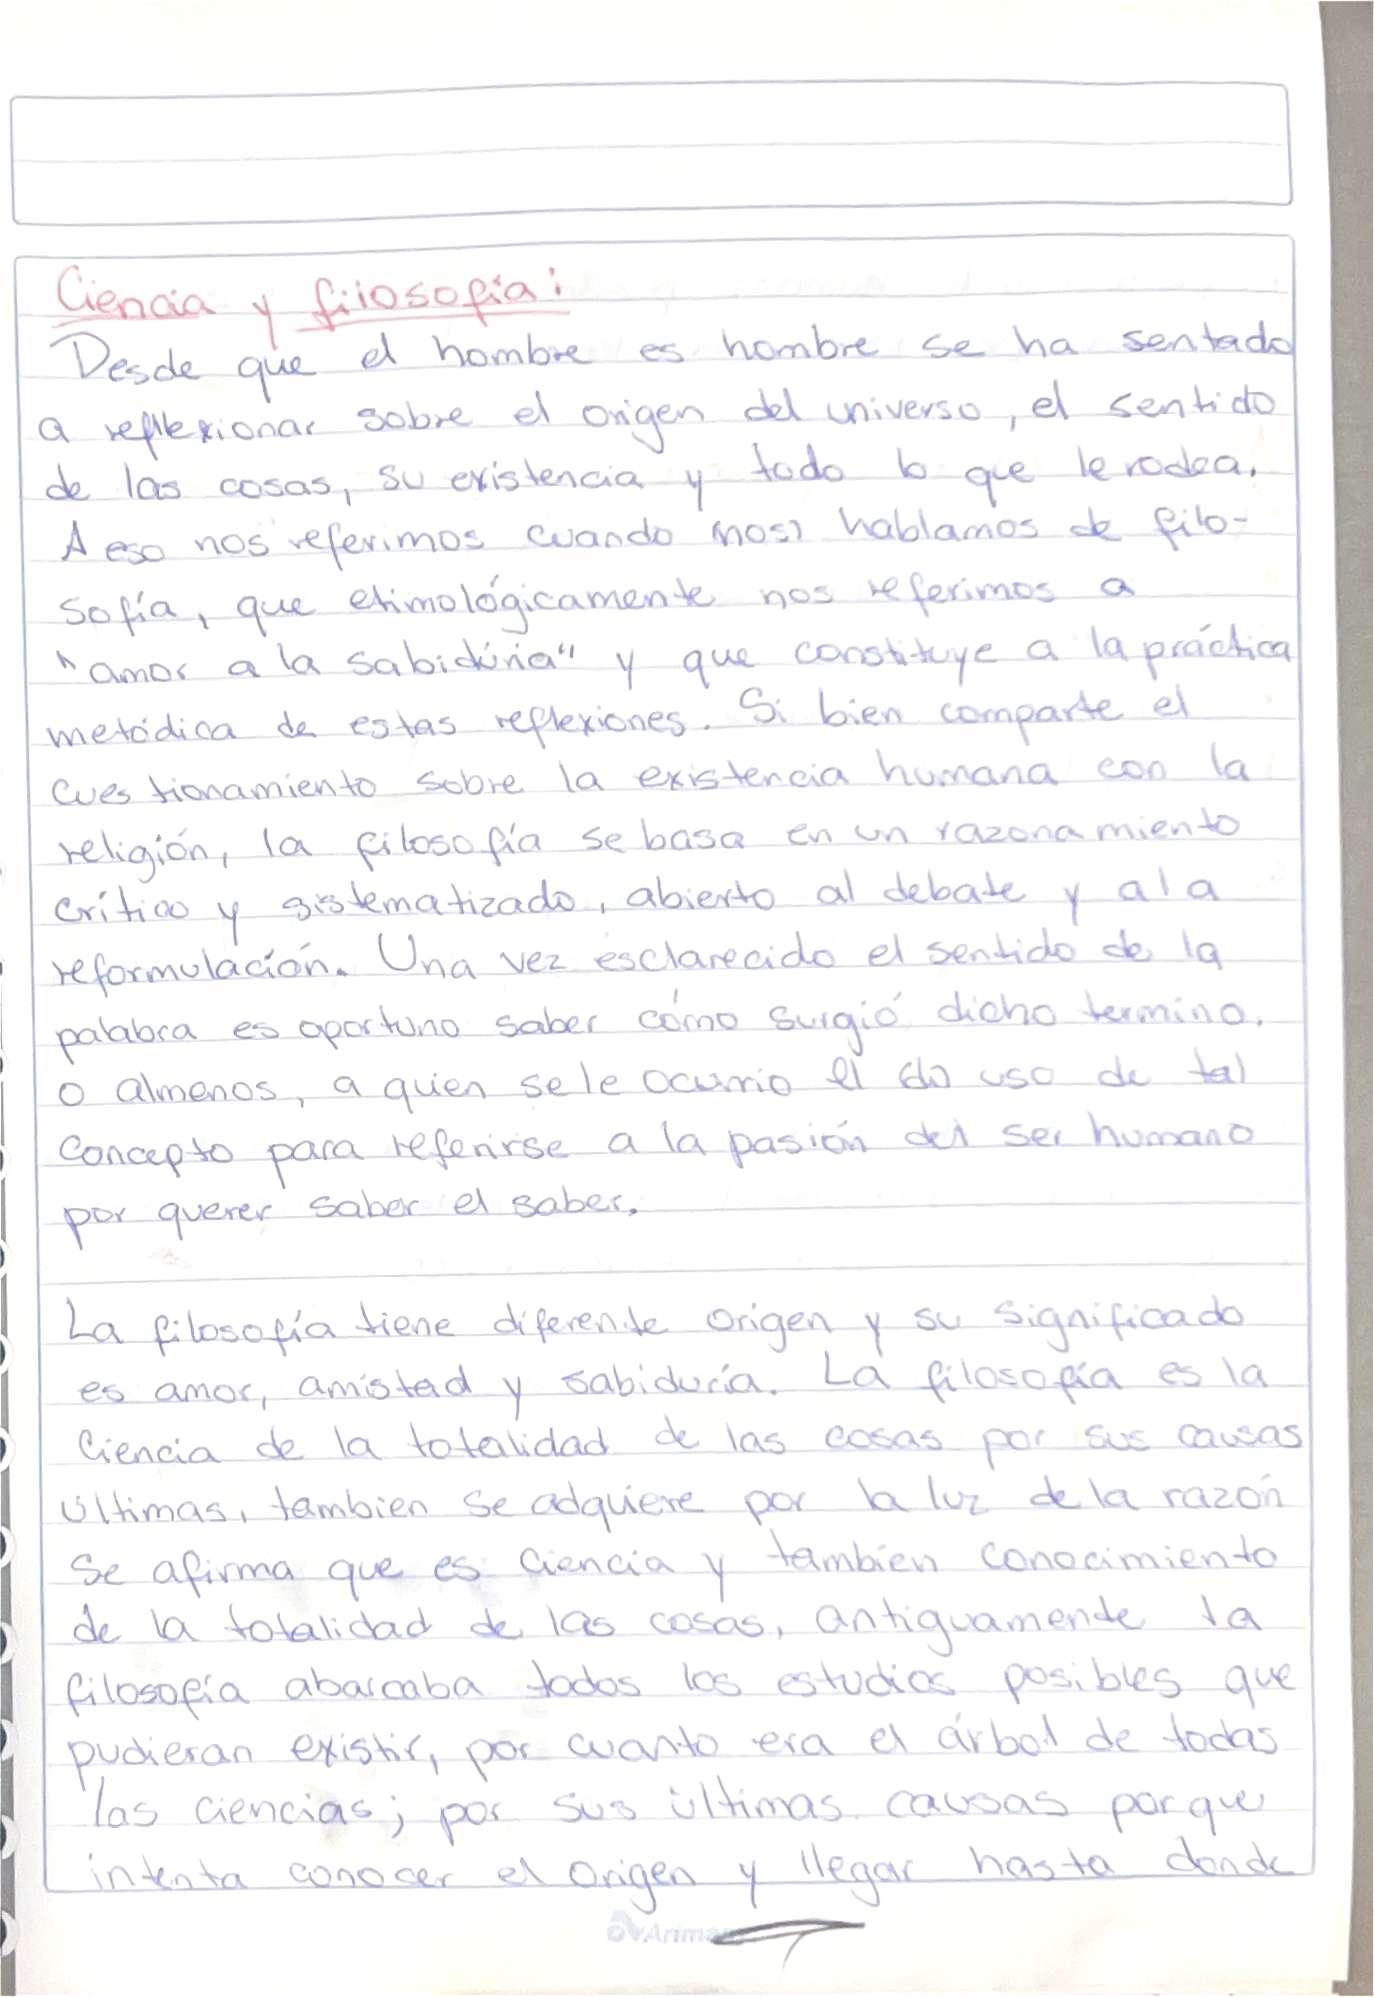 Ciencia y filosofía:
Desde que el hombre es hombre se ha sentado
a reflexionar sobre el origen del universo, el sentido
de las cosas, su existencia y todo lo que le rodea.
A eso nos referimos cuando (nos) hablamos de filo-
sofía, que etimológicamente nos referimos a
"amor a la sabiduría" y que constituye a la práctica
metódica de estas reflexiones. Si bien comparte el
cuestionamiento sobre la existencia humana con la
religión, la filosofía se basa en un razonamiento
crítico y sistematizado, abierto al debate y a la
reformulación. Una vez esclarecido el sentido de la
palabra es oportuno saber cómo surgió dicho termino.
o almenos, a quien se le ocurrio el uso de tal
concepto para referirse a la pasión del ser humano
por querer saber el saber.
La filosofía tiene diferente origen y su significado
es amor, amistad y sabiduría. La filosofía es la
Ciencia de la totalidad de las cosas por sus causas
últimas, tambien se adquiere por la luz de la razón
se afirma que es ciencia y tambien conocimiento
de la totalidad de las cosas, antiguamente la
filosofía abarcaba todos los estudios posibles que
pudieran existir, por cuanto era el árbol de todas
las ciencias; por sus últimas causas porque
intenta conocer el origen y llegar hasta donde